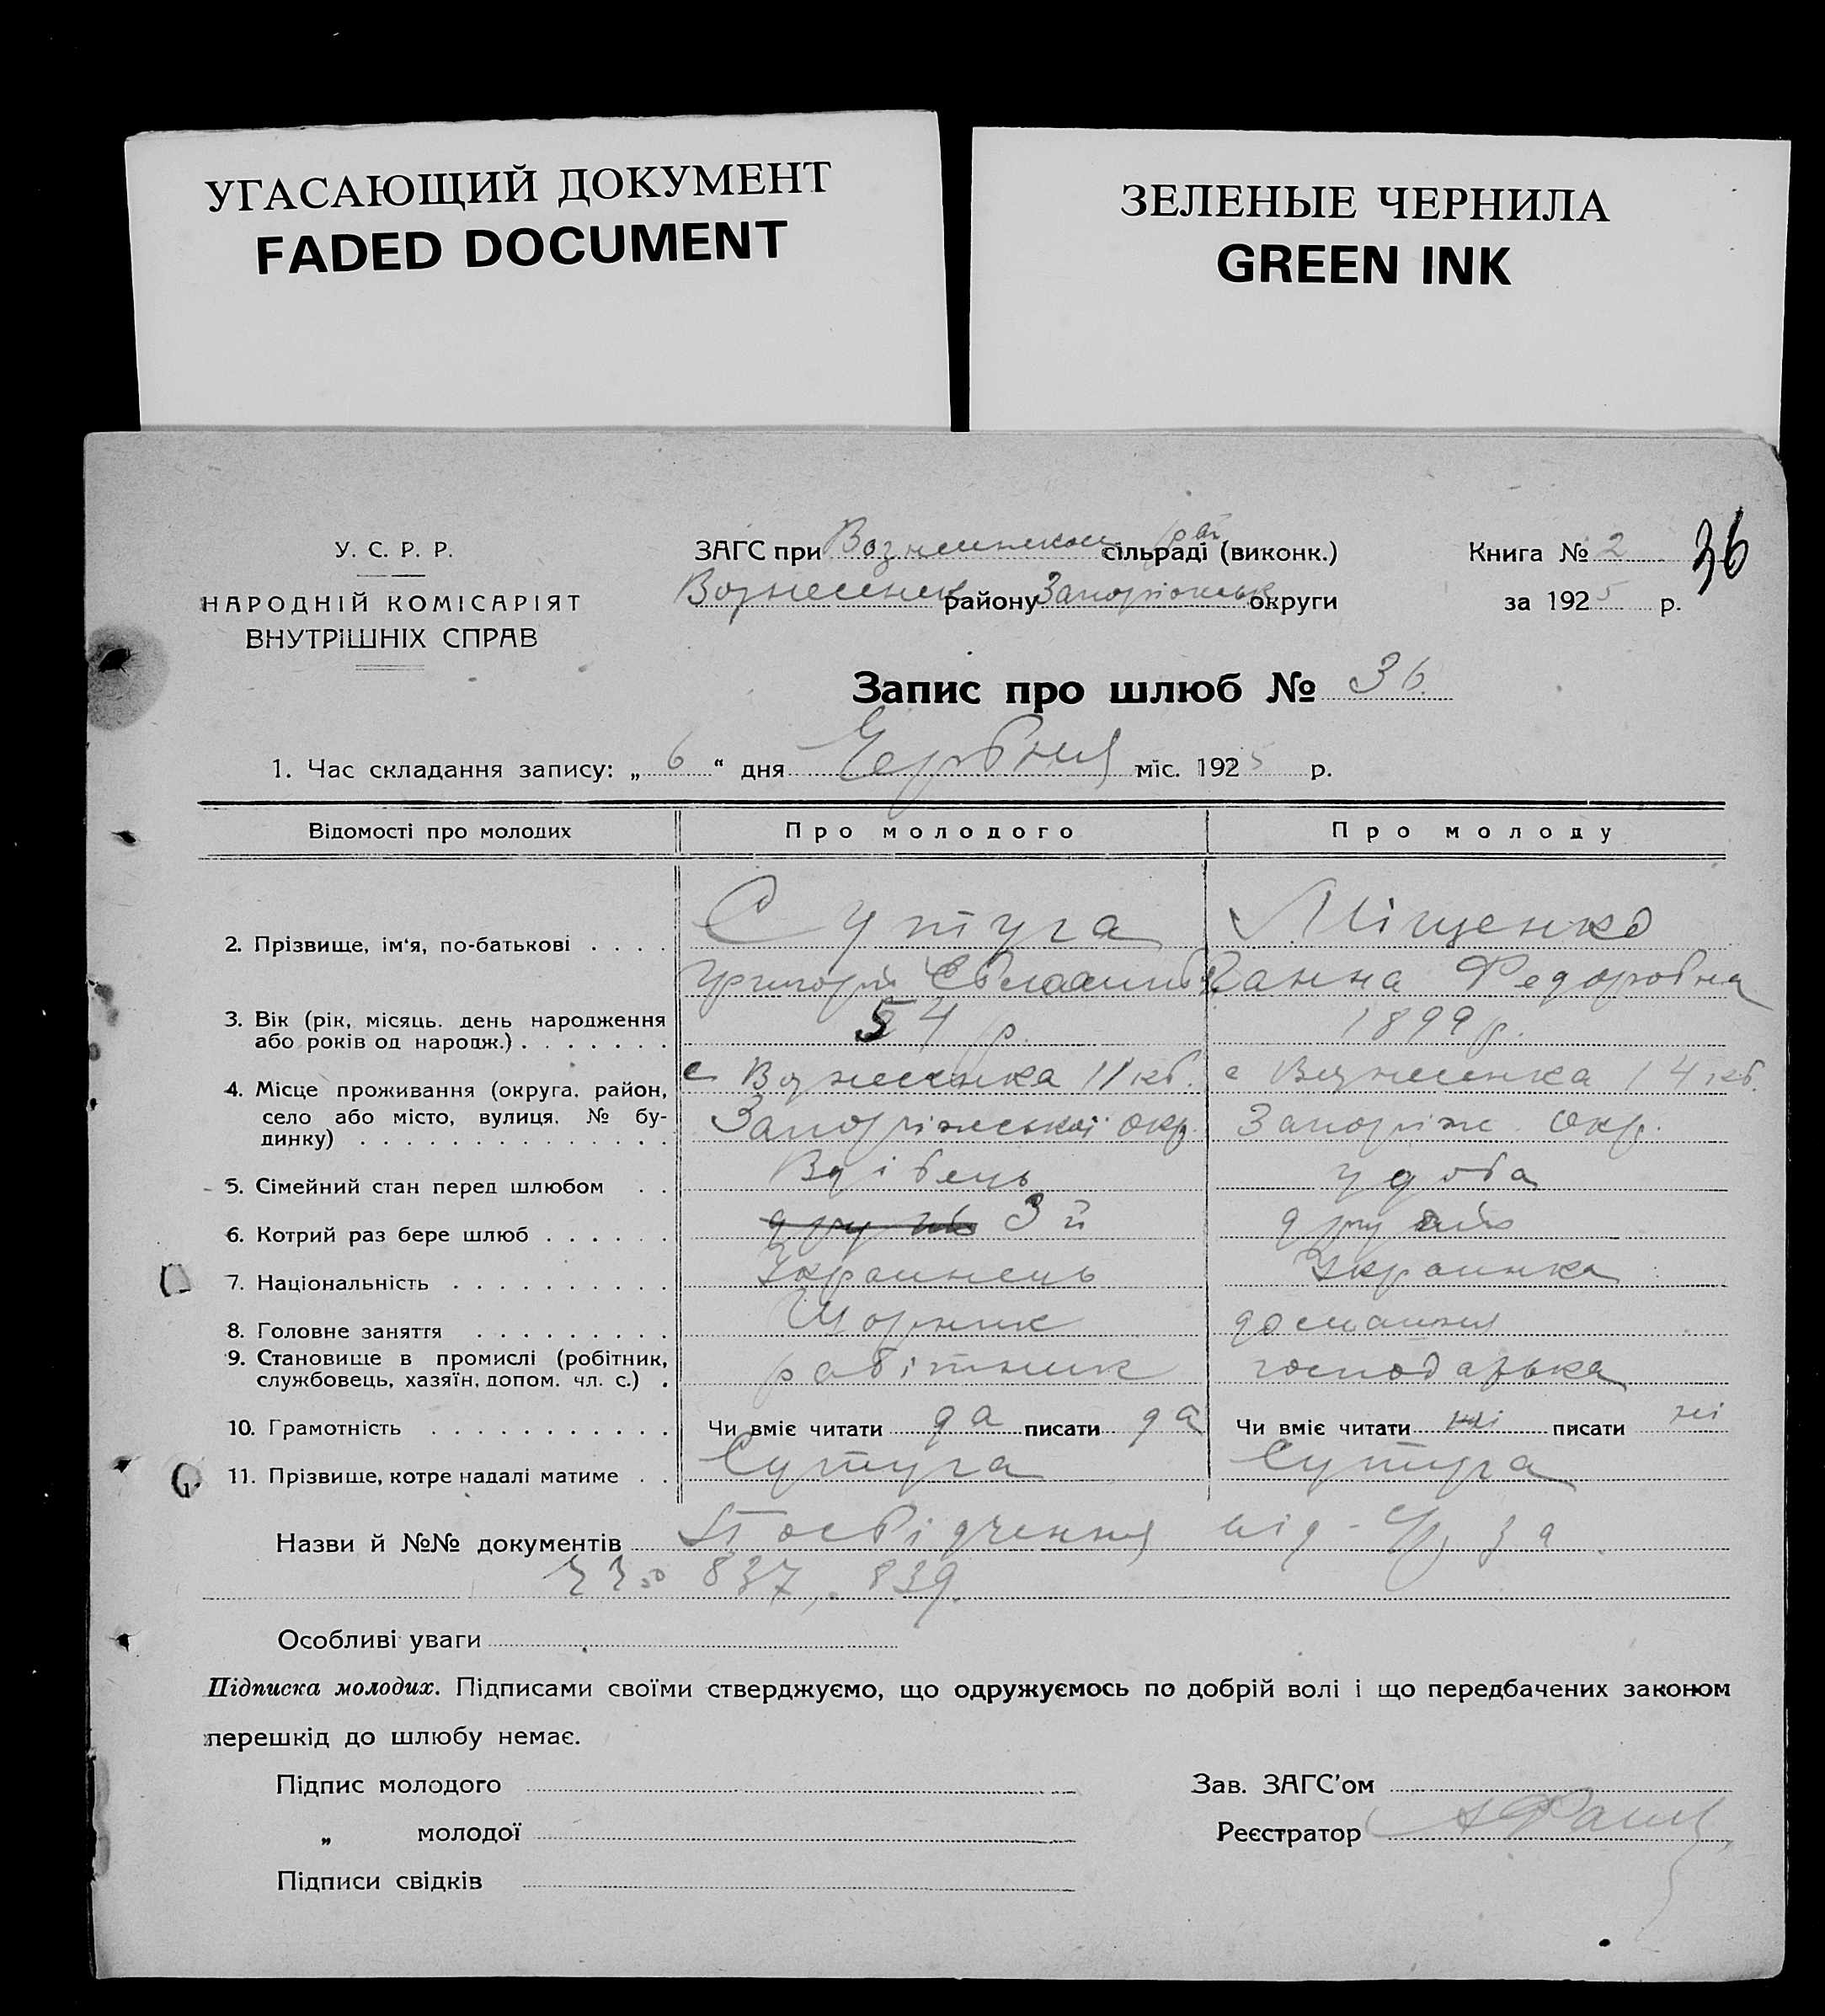 УГАСАЮЩИЙ ДОКУМЕНТ
FADED DOCUMENT
ЗЕЛЕНЫЕ ЧЕРНИЛА
GREEN INK
У. С. Р. Р.
НАРОДНІЙ КОМІСАРІЯТ
ВНУТРІШНІХ СПРАВ
ЗАГС при сільраді (виконк.)
Вознесенск району Запоріжськ округи
Книга № 2
36
за 1925 р.
Запис про шлюб № 36
1. Час складання запису: „ 6 “ дня Червня міс. 1925 р.
Відомості про молодих Про молодого Про молоду
2. Прізвище, ім‘я, по-батькові . . . . Сутуга Міщенко
Григорій Ганна Федоровна
3. Вік (рік, місяць. день народження або років од народж.) . . . . . . . 54 р. 1899 р.
4. Місце проживання (округа, район, с Вознесенка 11 кв. с Вознесенка 14 кв.
село або місто, вулиця, № будинку) . . . . . . . . . . . . . . Запоріжської окр. Запоріж. Окр.
5. Сімейний стан перед шлюбом . . Вдівець удова
6. Котрий раз бере шлюб . . . . . . 3й другий
7. Національність . . . . . . . . . . Украинець Украинка
8. Головне заняття . . . . . . . . . Шорник домашня
9. Становище в промислі (робітник, службовець, хазяїн, допом. чл. с.) . робітник господарька
10. Грамотність . . . . . . . . . . . Чи вміє читати да писати да Чи вміє читати ні писати ні
11. Прізвище, котре надалі матиме . . Сутуга Сутуга
Назви й №№ документів Посвідчення від
837, 839.
Особливі уваги
Підписка молодих. Підписами своїми стверджуємо, що одружуємось по добрій волі і що передбачених законом
перешкід до шлюбу немає.
Підпис молодого
Зав. ЗАГС’ом
„ молодої
Реєстратор
Підписи свідків